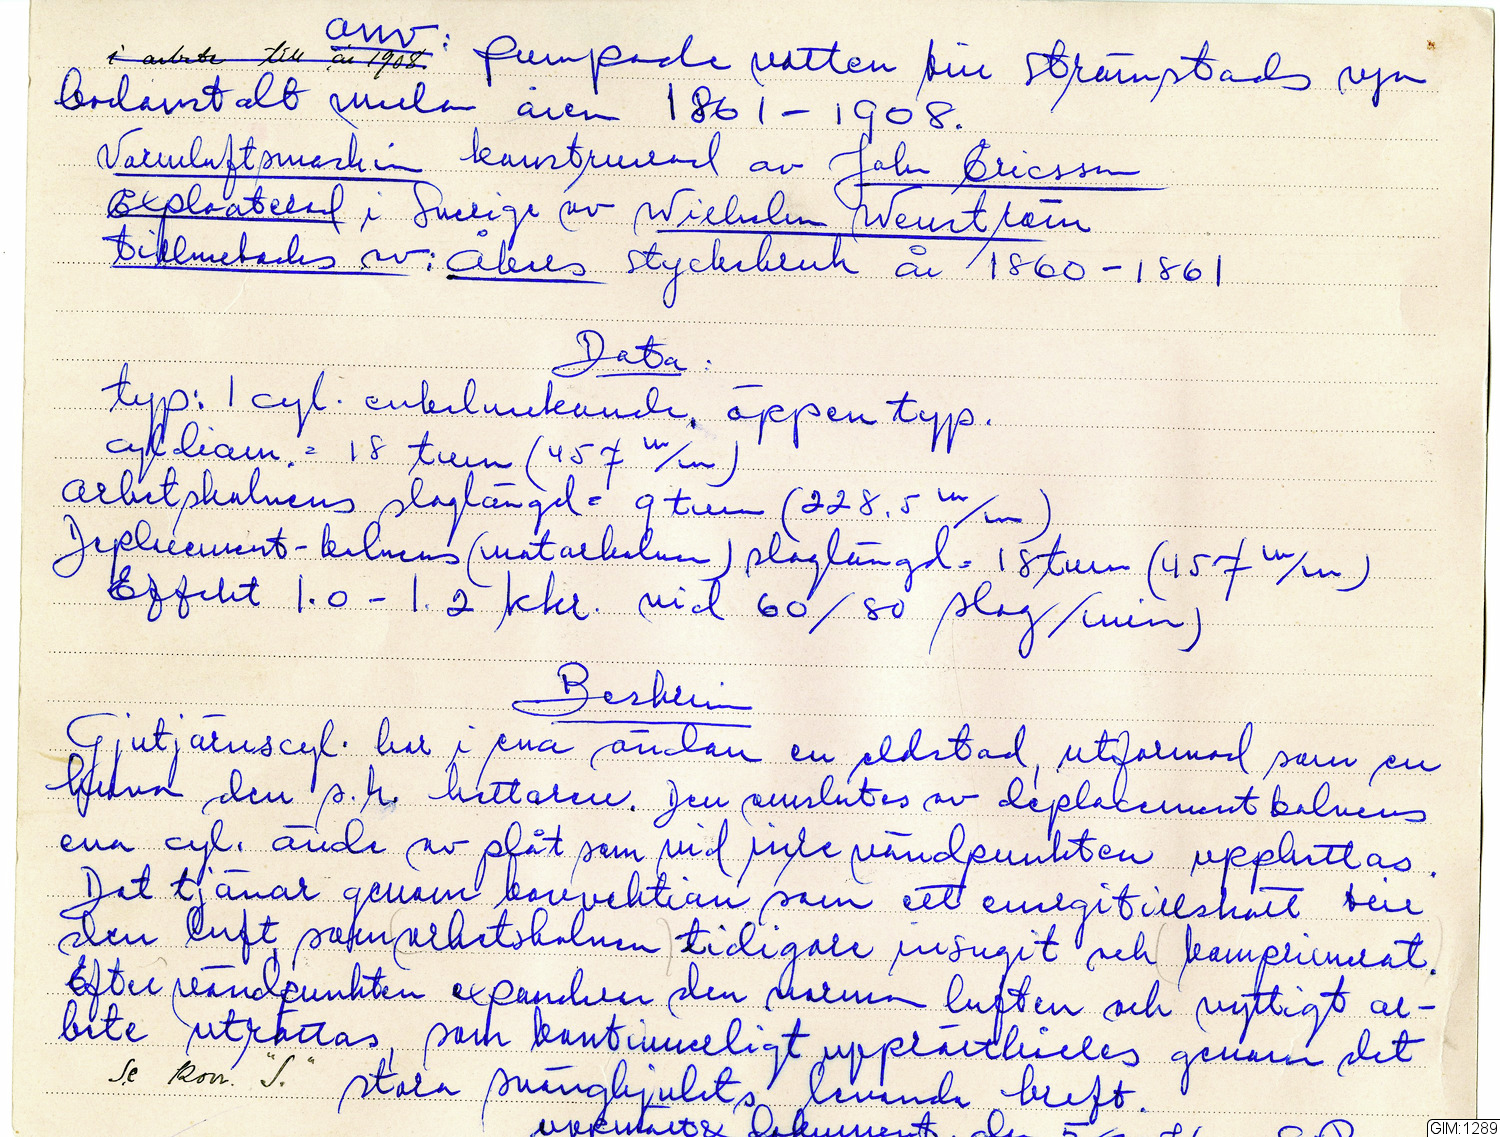 anv:
i arbete till år 1908. pumpade vatten till Strömstads nya
badanstalt mellan åren 1861-1908.
Varmluftsmaskin konstruerad av John Ericsson
Exploaterad i Sverige av Wilhelm Wenström
tillverkades av: Åkers styckebruk år 1860-1861
Data:
typ: 1 cyl. enkelverkande, öppen typ.
cyldiam. = 18 tum (457 m/m)
arbetskolvens slaglängd = 9 tum (228.5 m/m)
Deplacement-kolvens (matarkolven) slaglängd = 18 tum (457 m/m)
Effekt 1.0-1.2 hkr. vid 60/80 slag/min)
Beskrivn
Gjutjärnscyl. har i ena ändan en eldstad, utformad som en
den s.k. hettaren. Den omslutes av deplacementkolvens
ena cyl. ände av plåt som vid inre vändpunkten upphettas.
Det tjänar genom konvektion som ett energitillskott till
den luft, som arbetskolven tidigare insugit och komprimerat.
Efter vändpunkten expanderar den varma luften och nyttigt ar-
bete uträttas, som kontinuerligt upprätthålles genom det
Se korr. "S." stora svänghjulets levande kraft.
dokument
GIM:1289